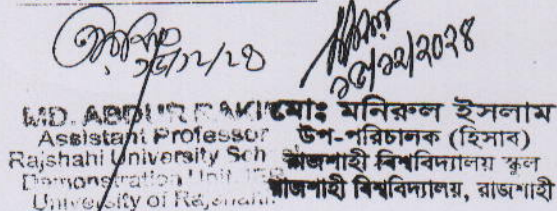 ১৬/১২/২৪
১৬/১২/২০২৪
MD. ABDUR RAKI
Assistant Professor
Rajshahi University Sch
Demonstration Unit,
University of Rajshahi
মোঃ মনিরুল ইসলাম
উপ-পরিচালক (হিসাব)
রাজশাহী বিশ্ববিদ্যালয় স্কুল
রাজশাহী বিশ্ববিদ্যালয়, রাজশাহী